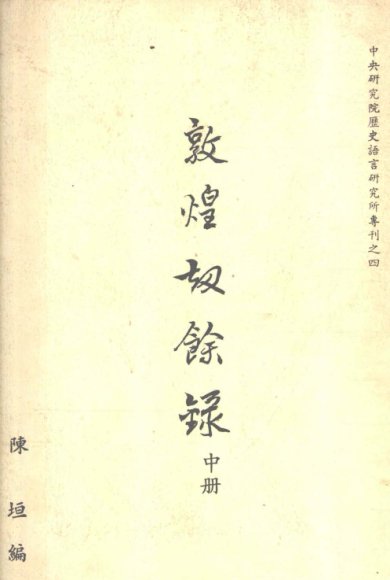 中央研究院歷史語言研究所專刊之四
敦煌刼餘錄
中册
陳垣編